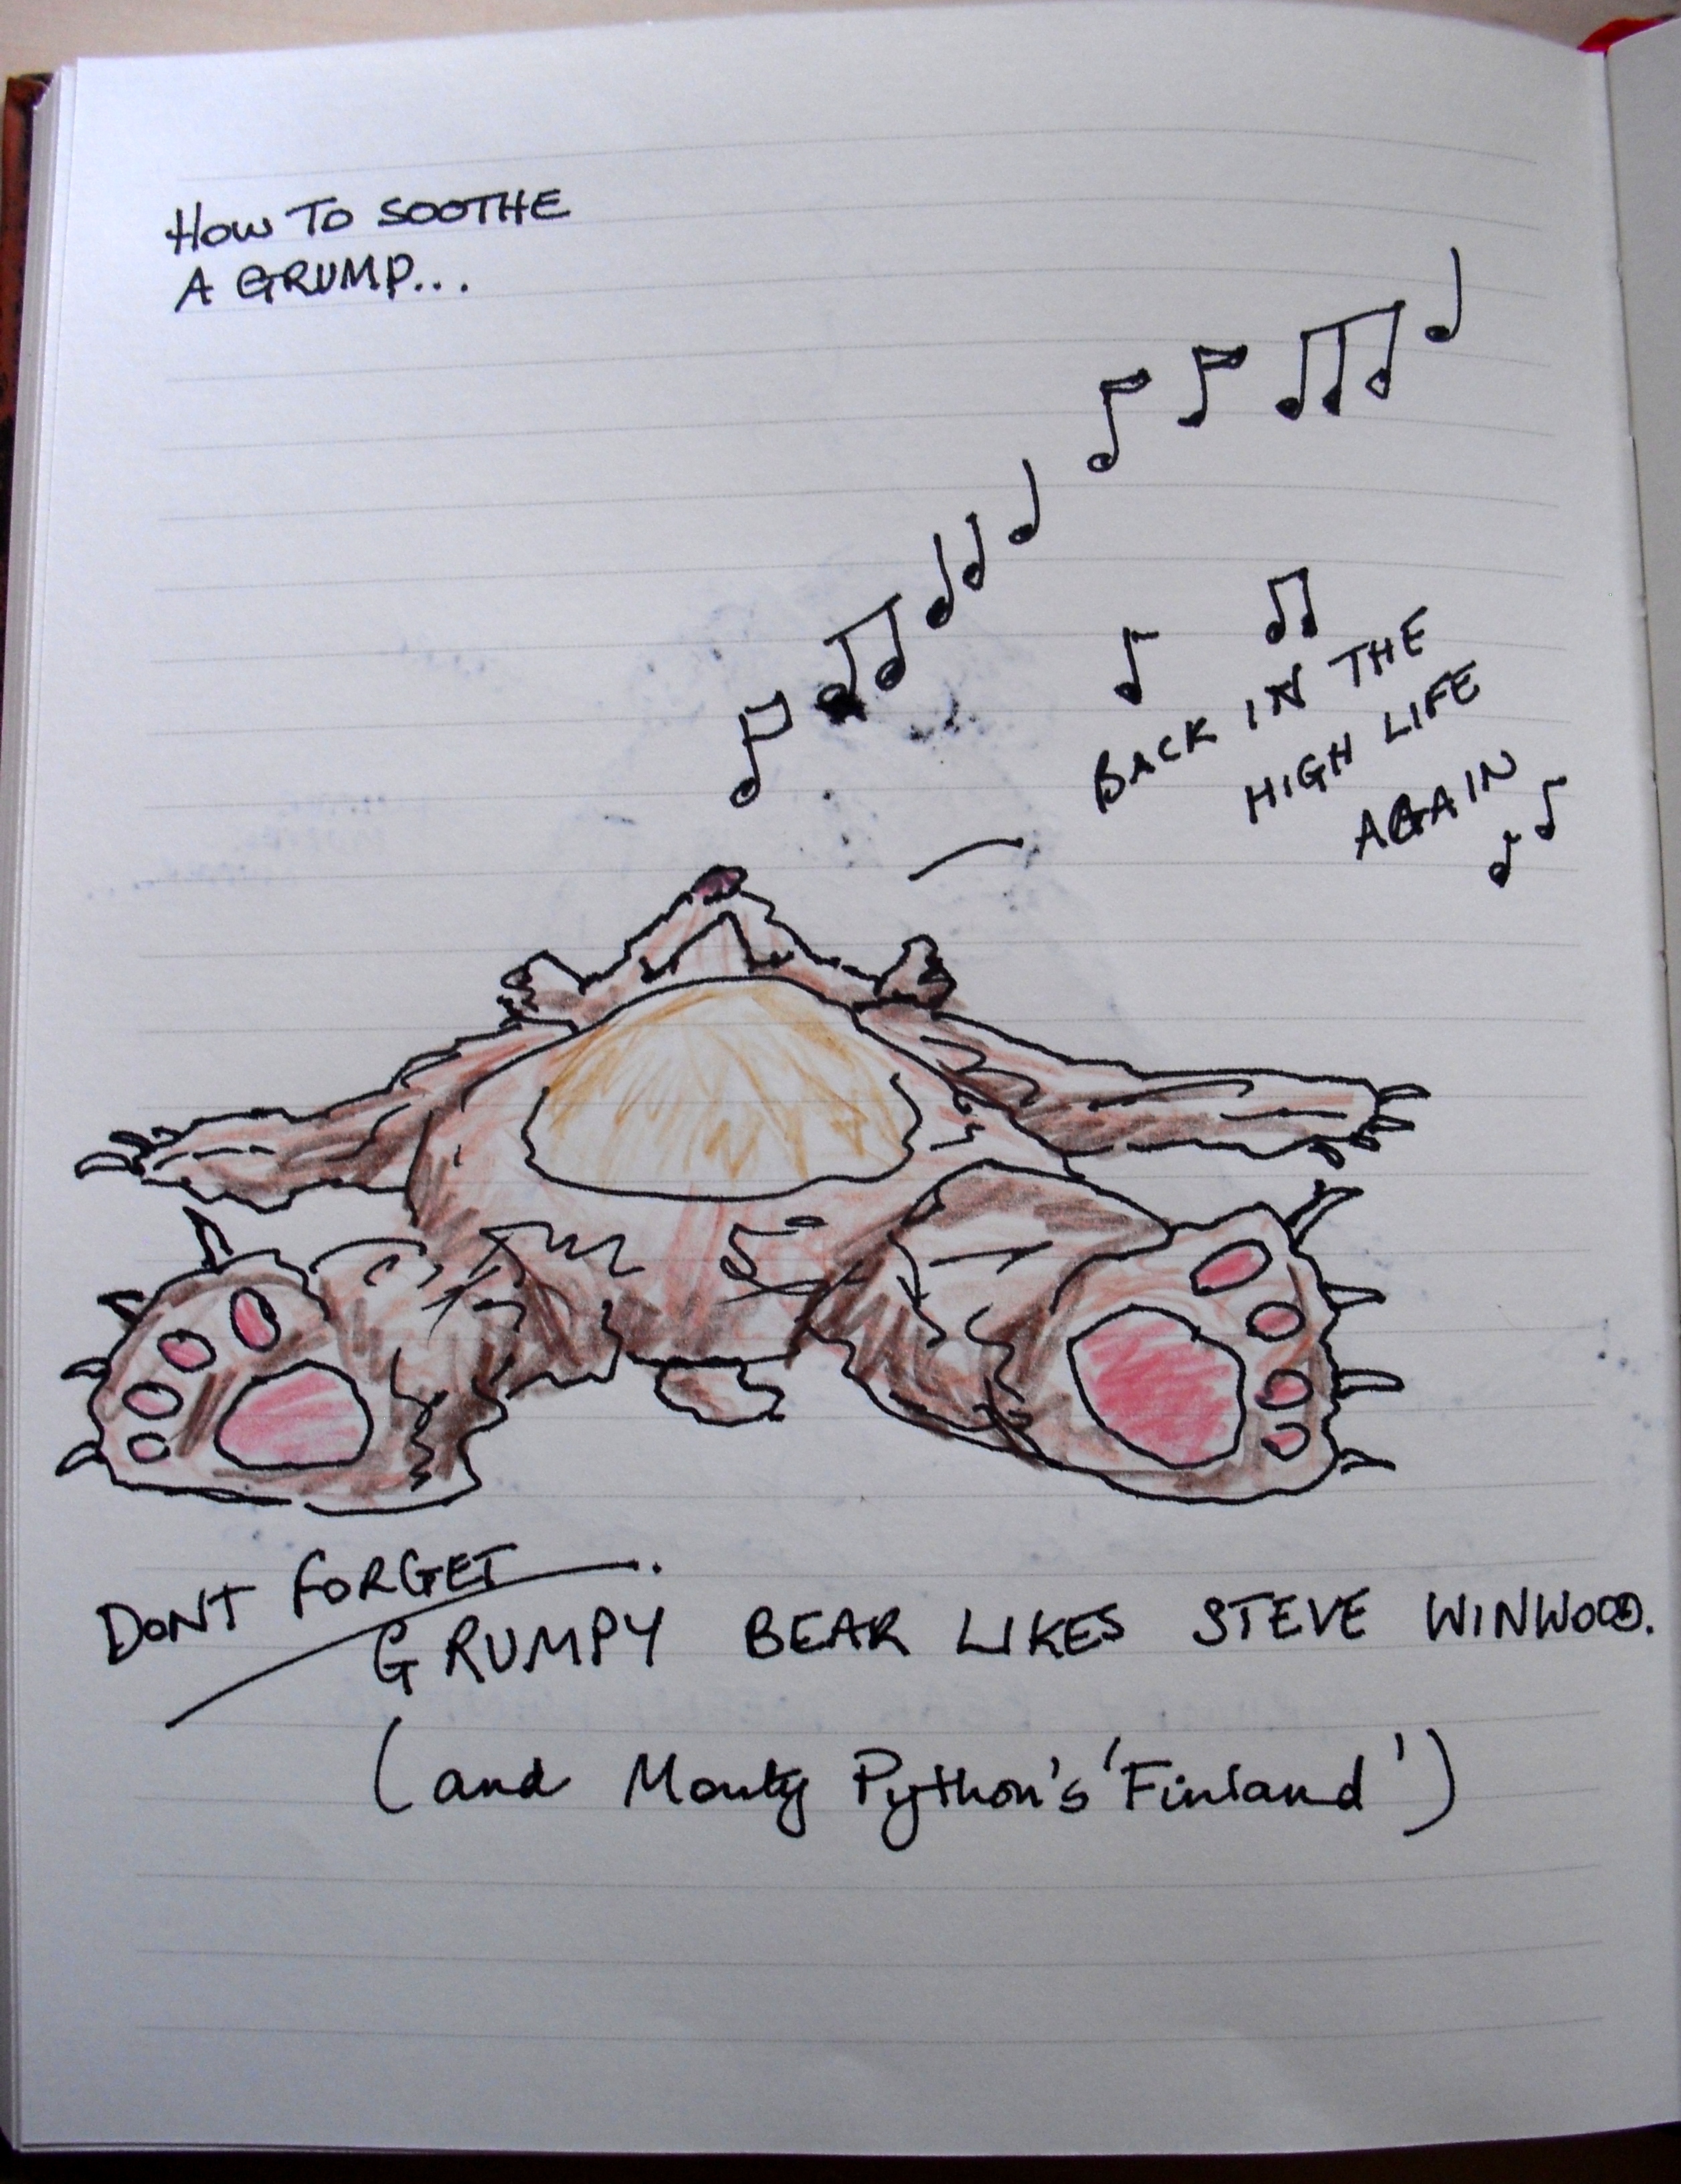 HOW TO SOOTHE
A GRUMP...
BACK IN THE
HIGH LIFE
AGAIN
DONT FORGET
GRUMPY BEAR LIKES STEVE WINWOOD.
(and Monty Python's 'Finland')